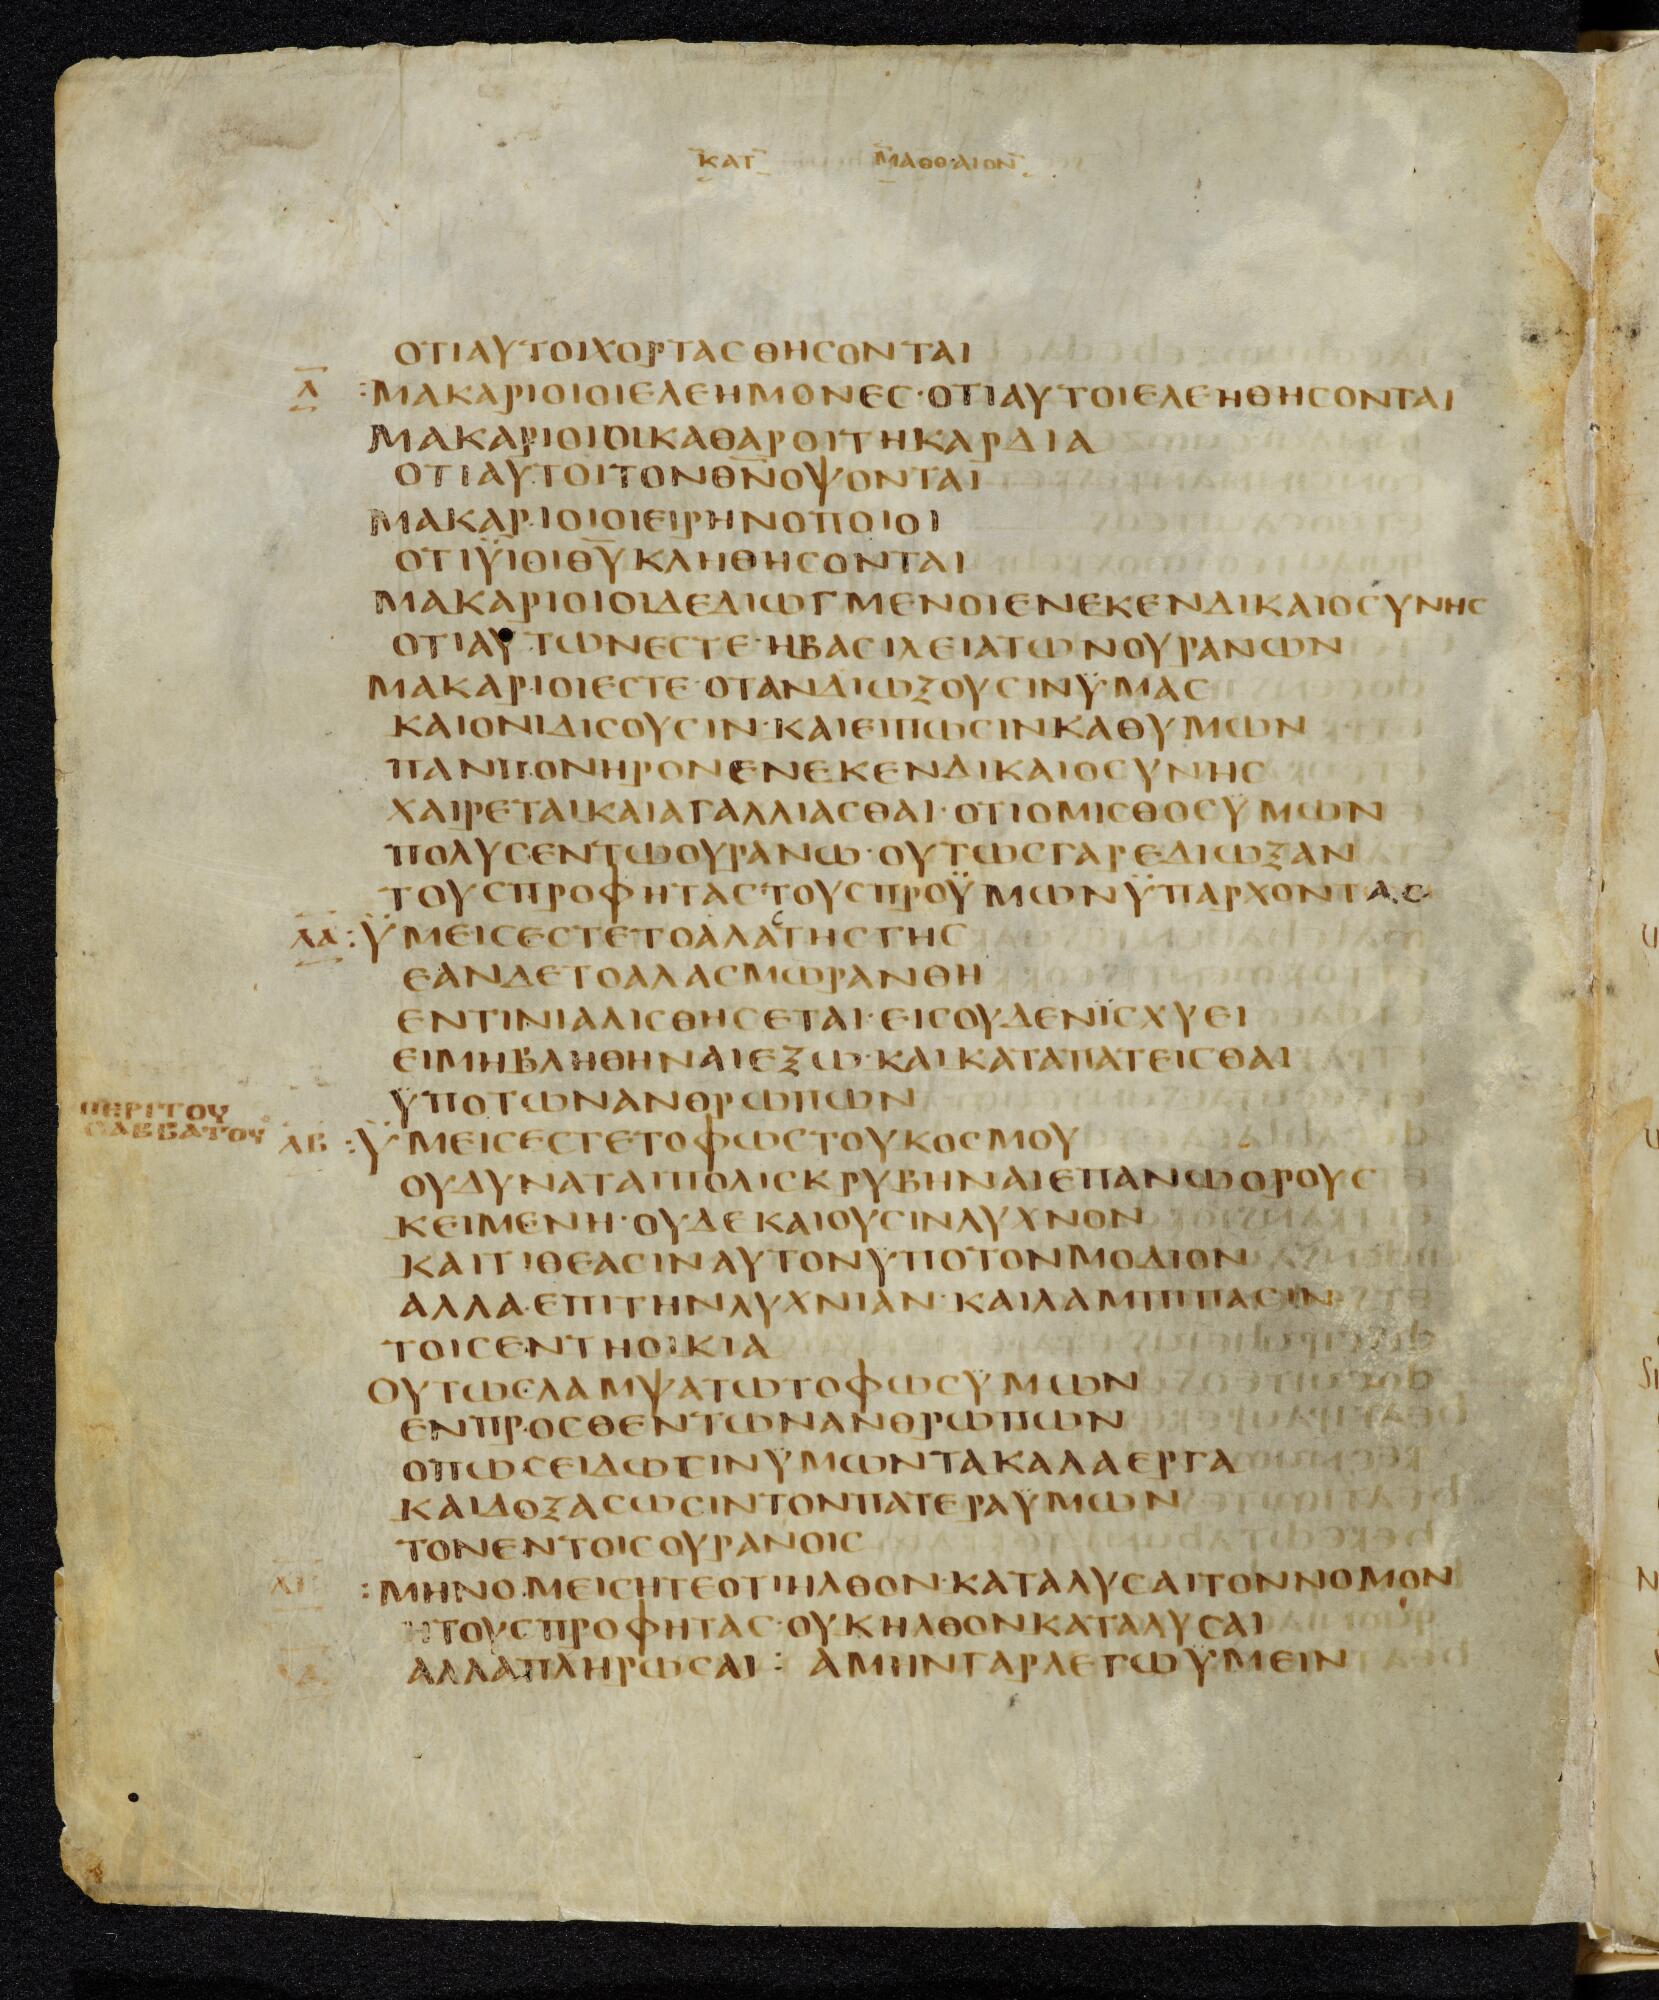 ΚΑΤ ΜΑΘΘΑΙΟΝ
ΟΤΙΑΥΤΟΙΧΟΡΤΑСΘΗСΟΝΤΑΙ
Λ :ΜΑΚΑΡΙΟΙΟΙΕΛΕΗΜΟΝΕС·ΟΤΙΑΥΤΟΙΕΛΕΗΘΗСΟΝΤΑΙ
ΜΑΚΑΡΙΟΙΟΙΚΑΘΑΡΟΙΤΗΚΑΡΔΙΑ
ΟΤΙΑΥΤΟΙΤΟΝΘ̅Ν̅ΟΨΟΝΤΑΙ
ΜΑΚΑΡΙΟΙΟΙΕΙΡΗΝΟΠΟΙΟΙ
ΟΤΙΫΙΟΙΘ̅Υ̅ΚΛΗΘΗСΟΝΤΑΙ
ΜΑΚΑΡΙΟΙΟΙΔΕΔΙΩΓΜΕΝΟΙΕΝΕΚΕΝΔΙΚΑΙΟСΥΝΗС
ΟΤΙΑΥΤΩΝΕСΤΕ·ΗΒΑСΙΛΕΙΑΤΩΝΟΥΡΑΝΩΝ
ΜΑΚΑΡΙΟΙΕСΤΕ·ΟΤΑΝΔΙΩΞΟΥСΙΝΫΜΑС
ΚΑΙΟΝΙΔΙСΟΥСΙΝ·ΚΑΙΕΙΠΩСΙΝΚΑΘΥΜΩΝ
ΠΑΝΠΟΝΗΡΟΝΕΝΕΚΕΝΔΙΚΑΙΟСΥΝΗС
ΧΑΙΡΕΤΑΙΚΑΙΑΓΑΛΛΙΑСΘΑΙ·ΟΤΙΟΜΙСΘΟСΫΜΩΝ
ΠΟΛΥСΕΝΤΩΟΥΡΑΝΩ·ΟΥΤΩСΓΑΡΕΔΙΩΞΑΝ
ΤΟΥСΠΡΟΦΗΤΑСΤΟΥСΠΡΟΫΜΩΝΫΠΑΡΧΟΝΤΑС
ΛΑ :ΫΜΕΙСΕСΤΕΤΟΑΛΑСΤΗСΓΗС
ΕΑΝΔΕΤΟΑΛΑСΜΩΡΑΝΘΗ
ΕΝΤΙΝΙΑΛΙСΘΗСΕΤΑΙ·ΕΙСΟΥΔΕΝΪСΧΥΕΙ
ΕΙΜΗΒΛΗΘΗΝΑΙΕΞΩ·ΚΑΙΚΑΤΑΠΑΤΕΙСΘΑΙ
ΫΠΟΤΩΝΑΝΘΡΩΠΩΝ
ΠΕΡΙΤΟΥ
СΑΒΒΑΤΟΥ
ΛΒ :ΫΜΕΙСΕСΤΕΤΟΦΩСΤΟΥΚΟСΜΟΥ
ΟΥΔΥΝΑΤΑΙΠΟΛΙСΚΡΥΒΗΝΑΙΕΠΑΝΩΟΡΟΥС
ΚΕΙΜΕΝΗ·ΟΥΔΕΚΑΙΟΥСΙΝΛΥΧΝΟΝ
ΚΑΙΤΙΘΕΑСΙΝΑΥΤΟΝΫΠΟΤΟΝΜΟΔΙΟΝ
ΑΛΛΑΕΠΙΤΗΝΛΥΧΝΙΑΝ·ΚΑΙΛΑΜΠΙΠΑСΙΝ
ΤΟΙСΕΝΤΗΟΙΚΙΑ
ΟΥΤΩСΛΑΜΨΑΤΩΤΟΦΩСΫΜΩΝ
ΕΝΠΡΟСΘΕΝΤΩΝΑΝΘΡΩΠΩΝ
ΟΠΩСΕΙΔΩСΙΝΫΜΩΝΤΑΚΑΛΑΕΡΓΑ
ΚΑΙΔΟΞΑСΩСΙΝΤΟΝΠΑΤΕΡΑΫΜΩΝ
ΤΟΝΕΝΤΟΙСΟΥΡΑΝΟΙС
ΛΓ :ΜΗΝΟΜΕΙСΗΤΕΟΤΙΗΛΘΟΝ·ΚΑΤΑΛΥСΑΙΤΟΝΝΟΜΟΝ
ΗΤΟΥСΠΡΟΦΗΤΑС·ΟΥΚΗΛΘΟΝΚΑΤΑΛΥСΑΙ
ΑΛΛΑΠΛΗΡΩСΑΙ : ΑΜΗΝΓΑΡΛΕΓΩΫΜΕΙΝ